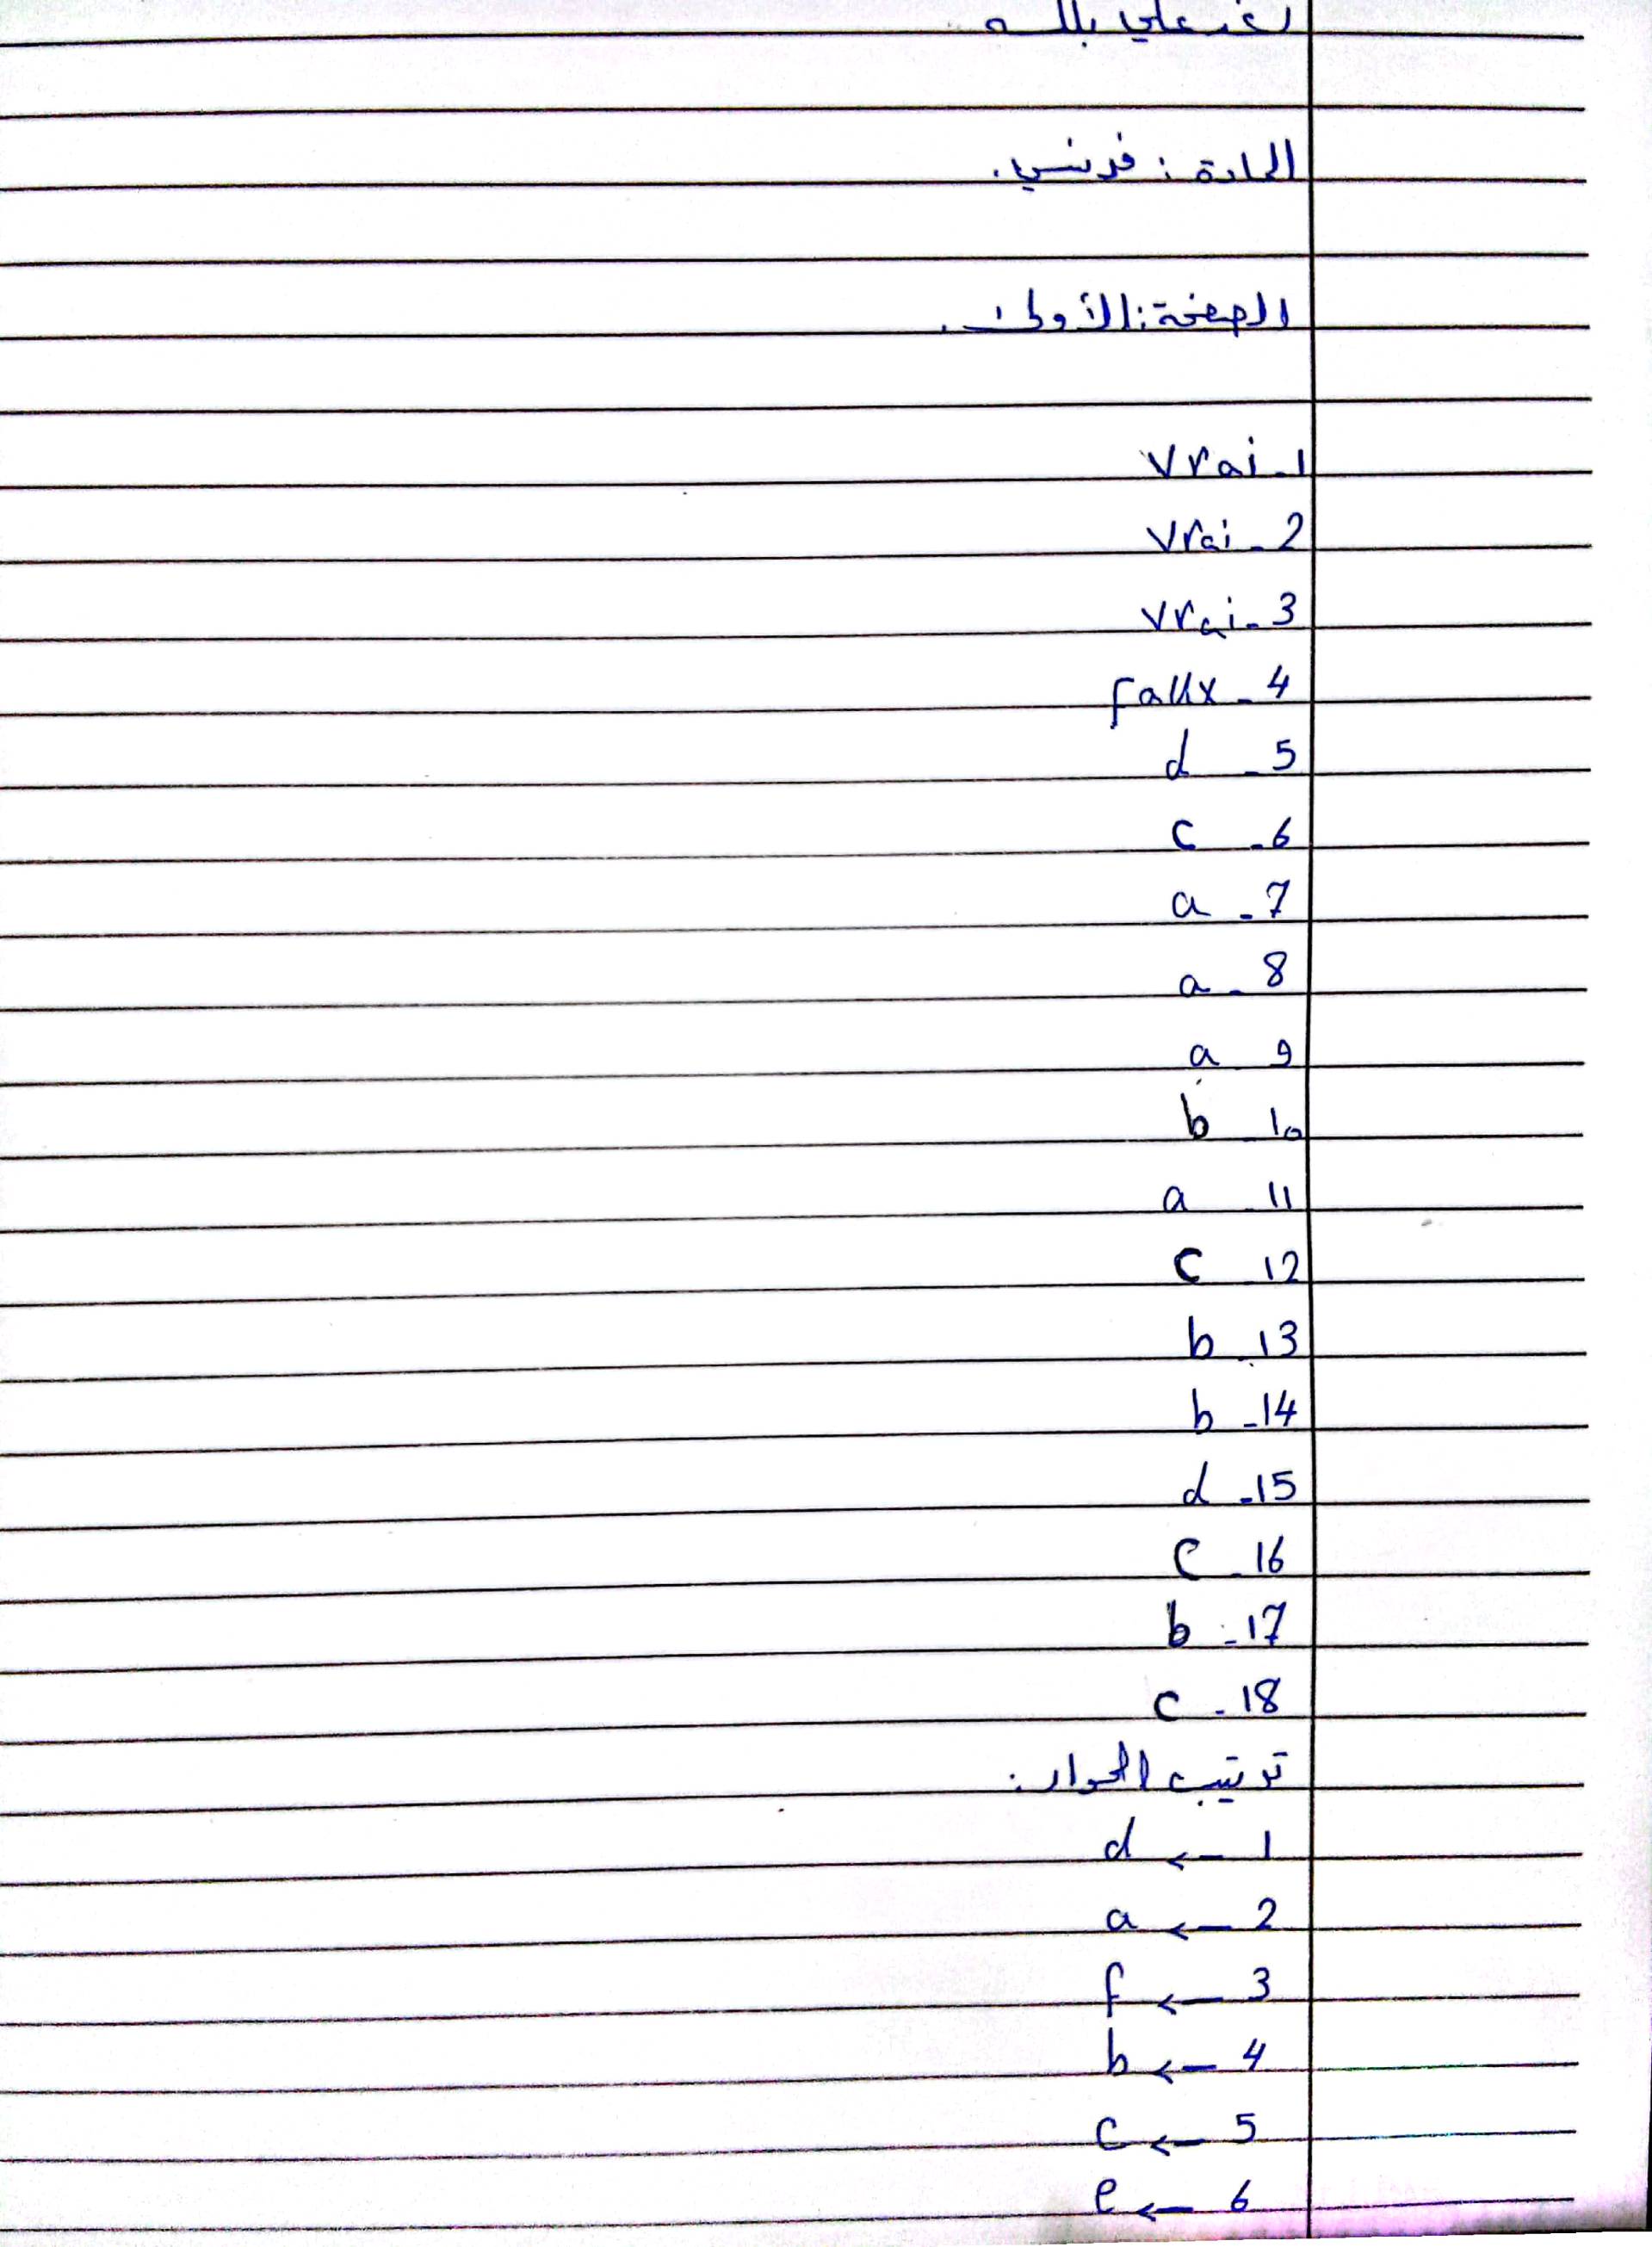 علي بللــه
المادة : فرنسي.
الصفحة : الأولى.
1- vrai
2- vrai
3- vrai
4- faux
5- d
6- c
7- a
8- a
9 a
10- b
11- a
12- c
13- b
14- b
15- d
16- c
17- b
18- c
ترتيب الحوار :
1 ← d
2 ← a
3 ← f
4 ← b
5 ← c
6 ← e